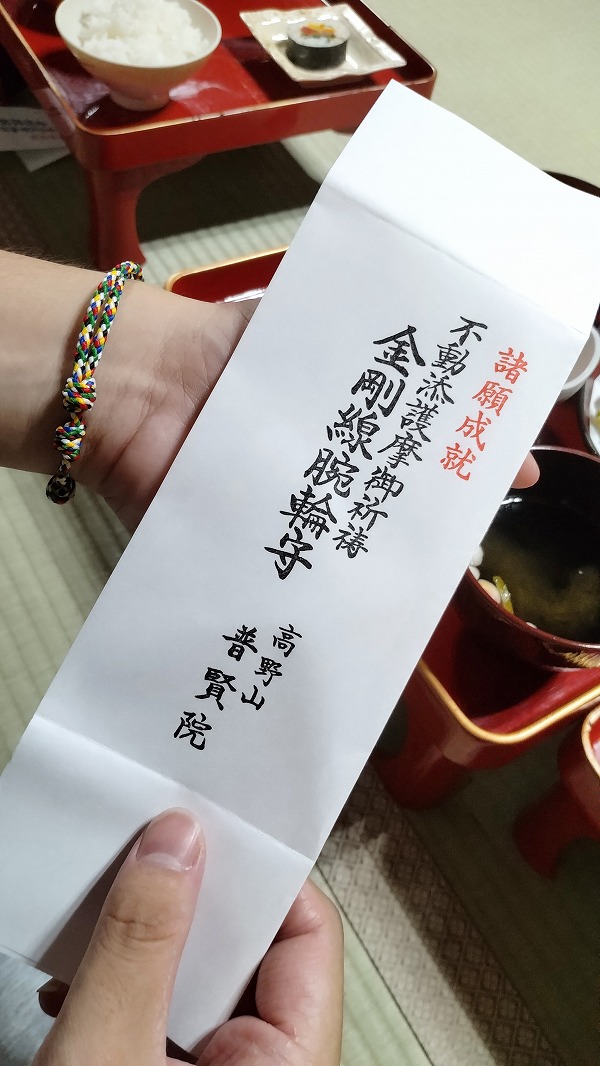 諸願成就
不動添護摩御祈祷
金剛線腕輪守
高野山
普賢院